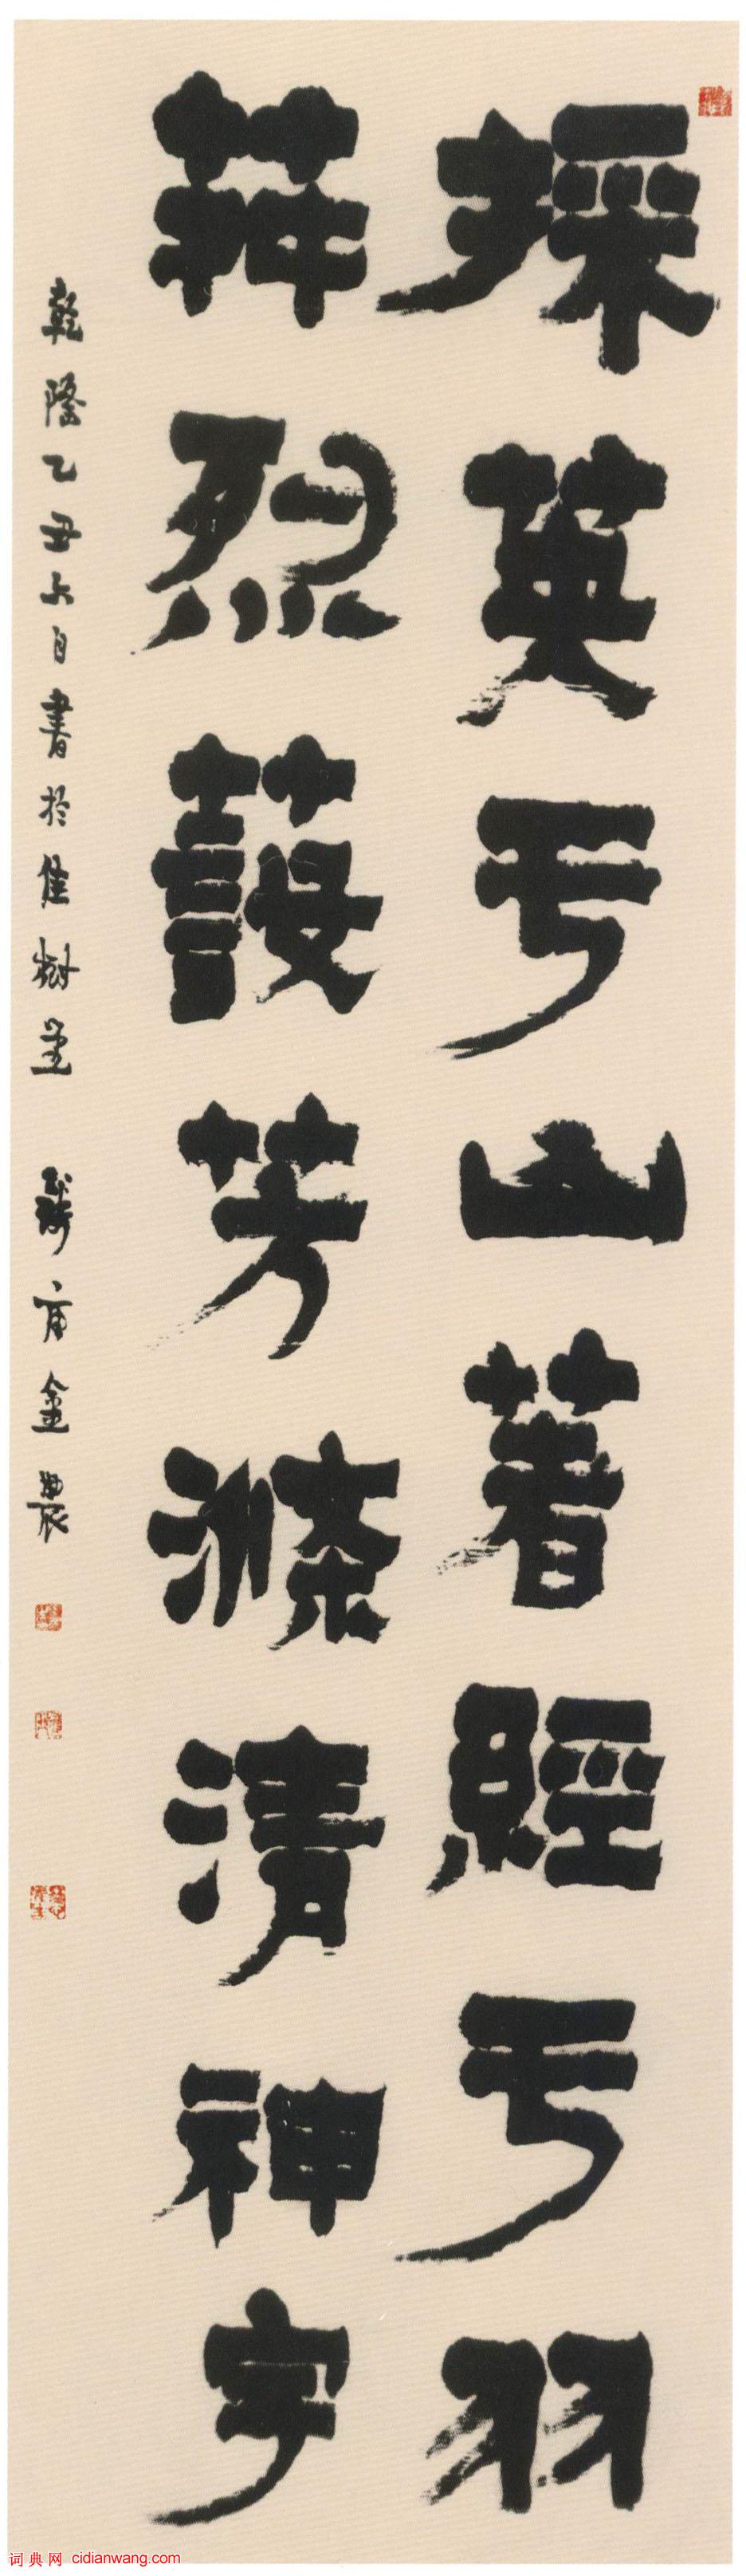 採英于山著經于羽
荈烈蔎芳滌清神宇
乾隆乙丑六月書於佳樹堂 錢唐金農
词典网 cidianwang.com